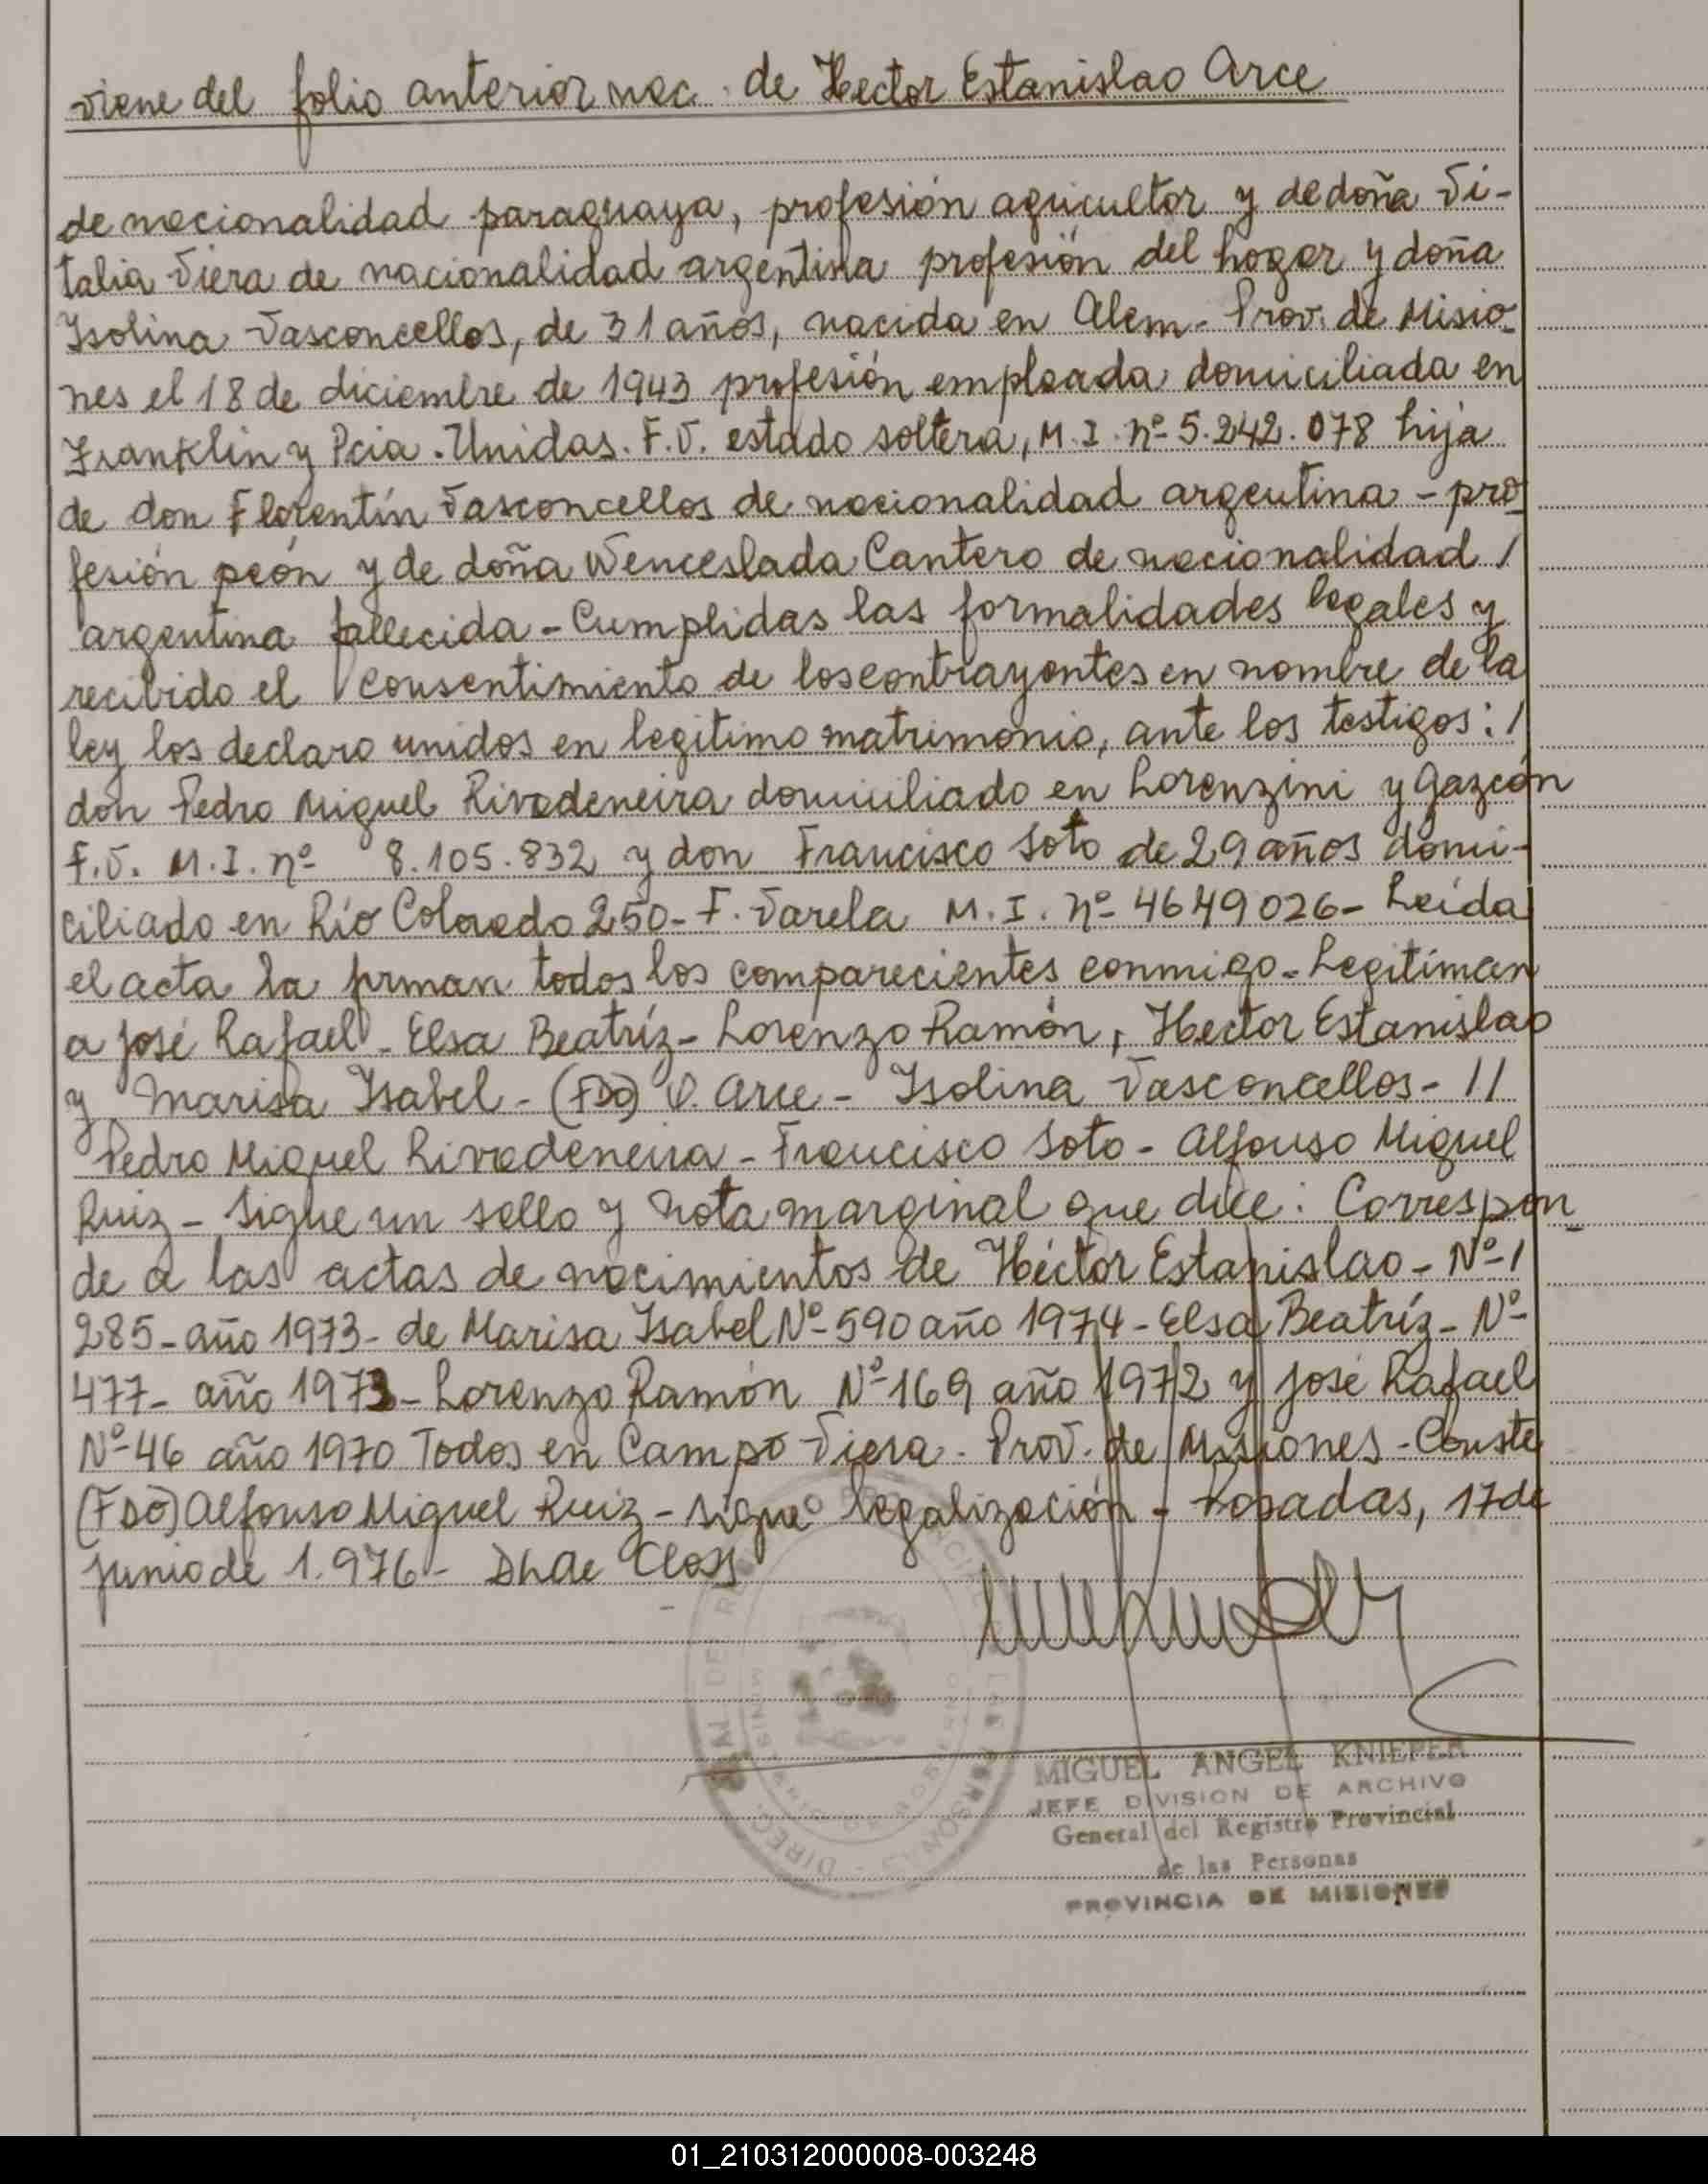 viene del folio anterior nac. de Hector Estanislao Arce
de nacionalidad paraguaya, profesión agricultor y de doña Vi-
talia Viera de nacionalidad argentina profesión del hogar y doña
Isolina Vasconcellos, de 31 años, nacida en Alem - Prov. de Misio-
nes el 18 de diciembre de 1943 profesión empleada domiciliada en
Franklin y Pcia. Unidas. F.V. estado soltera, M.I. nº 5.242.078 hija
de don Florentín Vasconcellos de nacionalidad argentina - pro-
fesión peón y de doña Wenceslada Cantero de nacionalidad /
argentina fallecida - Cumplidas las formalidades legales y
recibido el consentimiento de los contrayentes en nombre de la
ley los declaro unidos en legitimo matrimonio, ante los testigos: /
don Pedro Miguel Rivadeneira domiciliado en Lorenzini y Gazcón
F.V. M.I. nº 8.105.832 y don Francisco Soto de 29 años domi-
ciliado en Río Colorado 250 - F. Varela M.I. nº 4649026 - Leída
el acta la firman todos los comparecientes conmigo - Legitiman
a José Rafael - Elsa Beatríz - Lorenzo Ramón, Hector Estanislao
y Marisa Isabel - (FDO) Arce - Isolina Vasconcellos - //
Pedro Miguel Rivadeneira - Francisco Soto - Alfonso Miguel
Ruiz - Sigue un sello y nota marginal que dice: Correspon-
de a las actas de nacimientos de Héctor Estanislao - Nº /
285 - año 1973 - de Marisa Isabel Nº 590 año 1974 - Elsa Beatríz - Nº
477 - año 1973 - Lorenzo Ramón Nº 169 año 1972 y José Rafael
Nº 46 año 1970 Todos en Campo Viera - Prov. de Misiones - Conste
(FDO) Alfonso Miguel Ruiz - sigue legalización - Posadas, 17 de
junio de 1.976 -
MIGUEL ANGEL KNIEPER
JEFE DIVISION DE ARCHIVO
General del Registro Provincial
de las Personas
PROVINCIA DE MISIONES
01_210312000008-003248